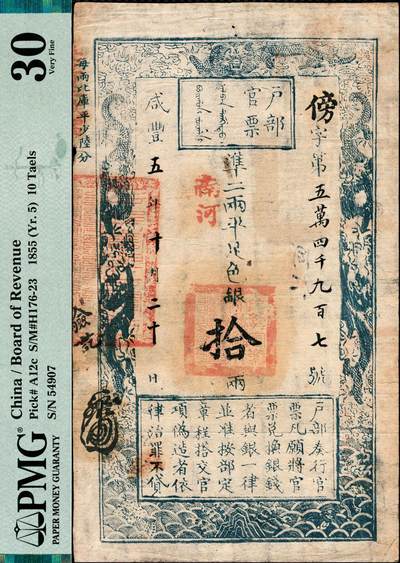 PMG®
PAPER MONEY GUARANTY
China / Board of Revenue
Pick# A12c S/M#H176-23 1855 (Yr. 5) 10 Taels
S/N 54907
30
Very Fine
戶部
官票
傍字第五萬四千九百七號
準二兩平足色銀拾兩
南河
咸豐五年十月二十日
每兩比庫平少陸分
戶部奏行官
票凡願將官
票兌換銀錢
者與銀一律
並准按部定
章程搭交官
項偽造者依
律治罪不貸